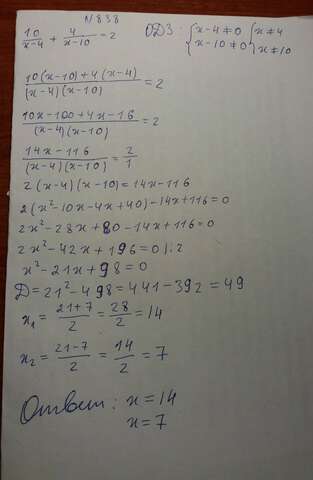 N 838
10/(x-4) + 4/(x-10) = 2 ОДЗ: {x-4≠0 {x≠4
x-10≠0 x≠10
(10(x-10)+4(x-4))/((x-4)(x-10)) = 2
(10x-100+4x-16)/((x-4)(x-10)) = 2
(14x-116)/((x-4)(x-10)) = 2/1
2(x-4)(x-10)=14x-116
2(x²-10x-4x+40)-14x+116=0
2x²-28x+80-14x+116=0
2x²-42x+196=0 |:2
x²-21x+98=0
D=21²-4·98=441-392=49
x₁ = (21+7)/2 = 28/2 = 14
x₂ = (21-7)/2 = 14/2 = 7
Ответ: x=14
x=7